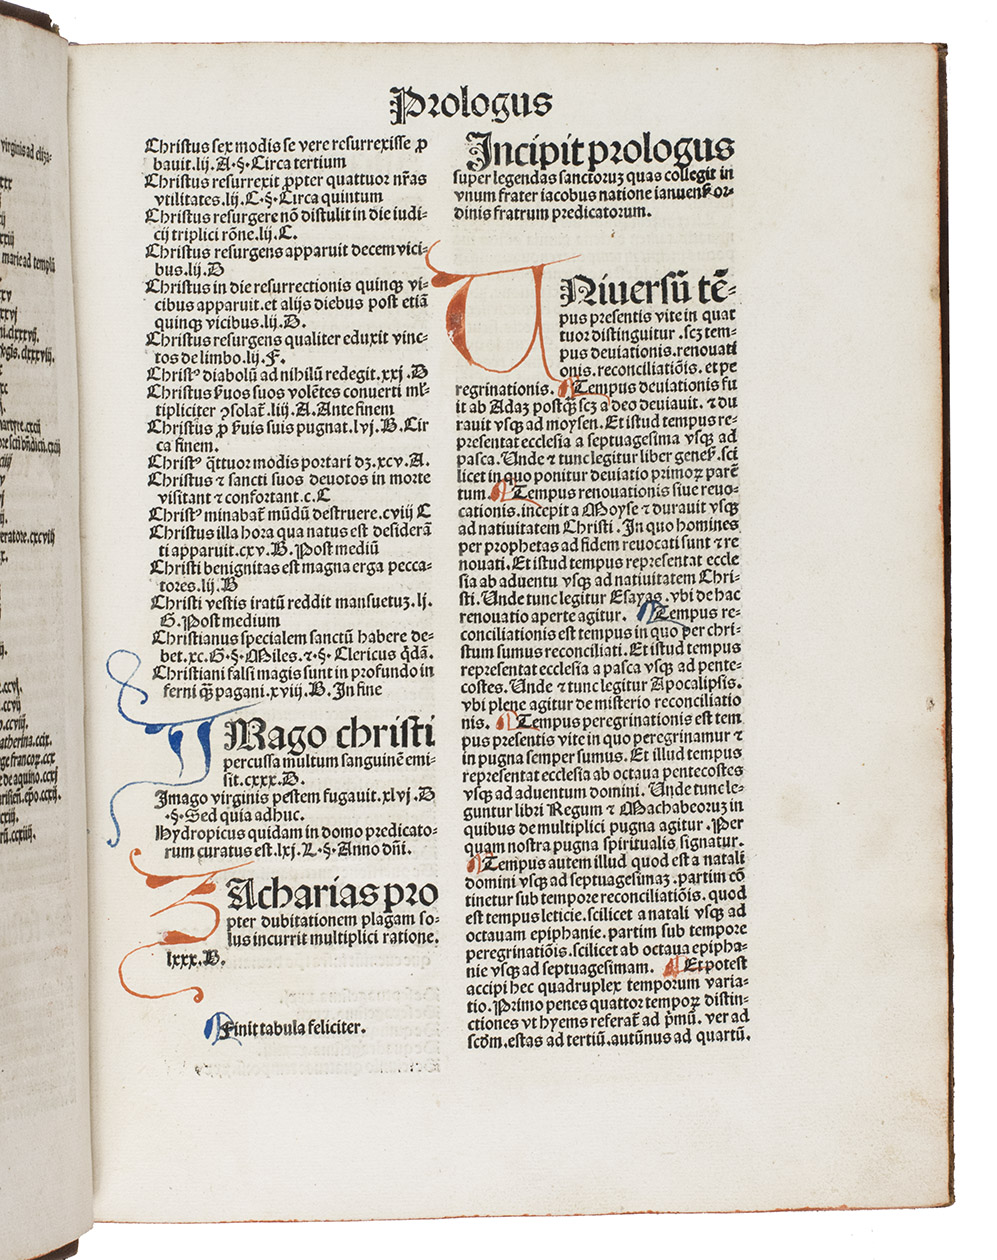 Prologus
Christus sex modis se vere resurrexisse ꝓ
bauit.lij.A.§.Circa tertium
Christus resurrexit ꝓpter quattuor nr̃as
vtilitates.lij.C.§.Circa quintum
Christus resurgere nõ distulit in die iudi⸗
cij triplici rõne.lij.C.
Christus resurgens apparuit decem vici⸗
bus.lij.D
Christus in die resurrectionis quinqꝫ vi⸗
cibus apparuit.et alijs diebus post etiã
quinqꝫ vicibus.lij.D.
Christus resurgens qualiter eduxit vinc⸗
tos de limbo.lij.F.
Christꝰ diabolũ ad nihilũ redegit.xxj.D
Christus ẜuos suos volẽtes conuerti ml̕⸗
tipliciter ꝯsolat̃.liij.A.Ante finem
Christus ꝓ ẜuis suis pugnat.lvj.B.Cir
ca finem.
Christꝰ q̃ttuor modis portari dꝫ.xcv.A.
Christus ⁊ sancti suos deuotos in morte
visitant ⁊ confortant.c.C
Christꝰ minabat̃ mũdũ destruere.cviij C
Christus illa hora qua natus est desiderã
ti apparuit.cxv.B.Post mediũ
Christi benignitas est magna erga pecca⸗
tores.lij.B
Christi vestis iratũ reddit mansuetuꝫ.lj.
G.Post medium
Christianus specialem sanctũ habere de⸗
bet.xc.G.§.Miles.⁊.§.Clericus q̃dã.
Christiani falsi magis sunt in profundo in
ferni qꝫ̃ pagani.xviij.B.In fine
IMago christi
percussa multum sanguinẽ emi⸗
sit.cxxx.D.
Imago virginis pestem fugauit.xlvj.D
.§.Sed quia adhuc.
Hydropicus quidam in domo predicato⸗
rum curatus est.lxj.L.§.Anno dñi.
ZAcharias pro
pter dubitationem plagam so⸗
lus incurrit multiplici ratione.
lxxx.B.
Finit tabula feliciter.
Incipit prologus
super legendas sanctoruꝫ quas collegit in
vnum frater iacobus natione ianuenẜ or⸗
dinis fratrum predicatorum.
UNiuersũ tẽ⸗
pus presentis vite in quat
tuor distinguitur .scꝫ tem⸗
pus deuiationis.renouati
onis.reconciliatiõis.et pe
regrinationis. Tempus deuiationis fu
it ab Adaꝫ postqꝫ̃ scꝫ a deo deuiauit. ⁊ du
rauit vsqꝫ ad moysen. Et istud tempus re⸗
presentat ecclesia a septuagesima vsqꝫ ad
pasca. Unde ⁊ tunc legitur liber geneẜ.sci
licet in quo ponitur deuiatio primoꝝ parẽ
tum. Tempus renouationis siue reuo⸗
cationis.incepit a Moyse ⁊ durauit vsqꝫ
ad natiuitatem Christi. In quo homines
per prophetas ad fidem reuocati sunt ⁊ re
nouati. Et istud tempus representat eccle
sia ab aduentu vsqꝫ ad natiuitatem Chri⸗
sti. Unde tunc legitur Esayas .vbi de hac
renouatio aperte agitur. Tempus re⸗
conciliationis est tempus in quo per chri⸗
stum sumus reconciliati. Et istud tempus
representat ecclesia a pasca vsqꝫ ad pente⸗
costes. Unde ⁊ tunc legitur Apocalipsis.
vbi plene agitur de misterio reconciliatio
nis. Tempus peregrinationis est tem
pus presentis vite in quo peregrinamur ⁊
in pugna semper sumus. Et illud tempus
representat ecclesia ab octaua pentecostes
vsqꝫ ad aduentum domini. Unde tunc le⸗
guntur libri Regum ⁊ Machabeoruꝫ in
quibus de multiplici pugna agitur .Per
quam nostra pugna spiritualis signatur.
Tempus autem illud quod est a natali
domini vsqꝫ ad septuagesimaꝫ .partim cõ
tinetur sub tempore reconciliatiõis. quod
est tempus leticie.scilicet a natali vsqꝫ ad
octauam epiphanie. partim sub tempore
peregrinatiõis.scilicet ab octaua epipha⸗
nie vsqꝫ ad septuagesimam. Et potest
accipi hec quadruplex temporum varia⸗
tio. Primo penes quattor tempoꝝ distin⸗
ctiones vt hyems referat̃ ad p̃mũ. ver ad
scd̃m.estas ad tertiũ.autũnus ad quartũ.